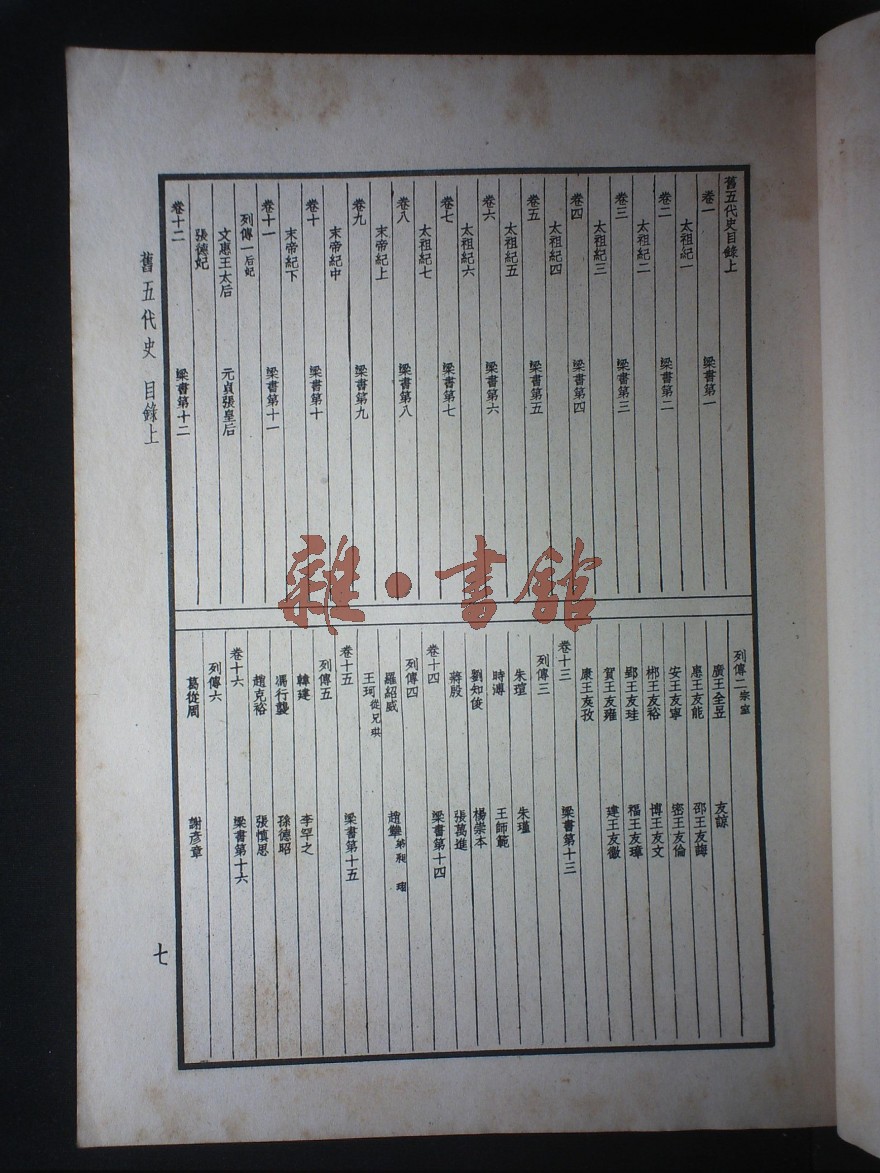 舊五代史目錄上
卷一 梁書第一
太祖紀一
卷二 梁書第二
太祖紀二
卷三 梁書第三
太祖紀三
卷四 梁書第四
太祖紀四
卷五 梁書第五
太祖紀五
卷六 梁書第六
太祖紀六
卷七 梁書第七
太祖紀七
卷八 梁書第八
末帝紀上
卷九 梁書第九
末帝紀中
卷十 梁書第十
末帝紀下
卷十一 梁書第十一
列傳一后妃
文惠王太后 元貞張皇后
張德妃
卷十二 梁書第十二
列傳二宗室
廣王全昱 友諒
惠王友能 邵王友誨
安王友寧 密王友倫
郴王友裕 博王友文
郢王友珪 福王友璋
賀王友雍 建王友徽
康王友孜
卷十三 梁書第十三
列傳三
朱瑄 朱瑾
時溥 王師範
劉知俊 楊崇本
蔣殷 張萬進
卷十四 梁書第十四
列傳四
羅紹威 趙犨弟昶 珝
王珂從兄珙
卷十五 梁書第十五
列傳五
韓建 李罕之
馮行襲 孫德昭
趙克裕 張慎思
卷十六 梁書第十六
列傳六
葛從周 謝彥章
舊五代史 目錄上
七
雜·書館